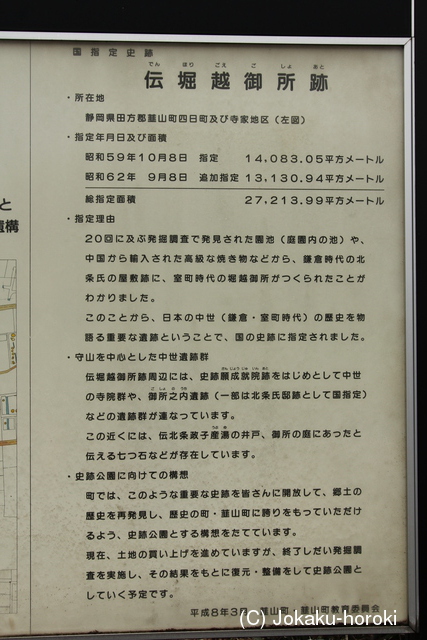 国指定史跡
でん ほり ごえ ご しょ あと
伝堀越御所跡
・所在地
静岡県田方郡韮山町四日町及び寺家地区（左図）
・指定年月日及び面積
昭和59年10月8日 指定 14,083.05平方メートル
昭和62年 9月8日 追加指定 13,130.94平方メートル
総指定面積 27,213.99平方メートル
・指定理由
20回に及ぶ発掘調査で発見された園池（庭園内の池）や、
中国から輸入された高級な焼き物などから、鎌倉時代の北
条氏の屋敷跡に、室町時代の堀越御所がつくられたことが
わかりました。
このことから、日本の中世（鎌倉・室町時代）の歴史を物
語る重要な遺跡ということで、国の史跡に指定されました。
・守山を中心とした中世遺跡群
がんじょうじゅ いん あと
伝堀越御所跡周辺には、史跡願成就院跡をはじめとして中世
ご しょ の うち
の寺院群や、御所之内遺跡（一部は北条氏邸跡として国指定）
などの遺跡群が連なっています。
うぶ ゆ
この近くには、伝北条政子産湯の井戸、御所の庭にあったと
伝える七つ石などが存在しています。
・史跡公園に向けての構想
町では、このような重要な史跡を皆さんに開放して、郷土の
歴史を再発見し、歴史の町・韮山町に誇りをもっていただけ
るよう、史跡公園とする構想をたてています。
現在、土地の買い上げを進めていますが、終了しだい発掘調
査を実施し、その結果をもとに復元・整備をして史跡公園と
していく予定です。
平成8年3月 韮山町・韮山町教育委員会
と
遺構
(C) Jokaku-horoki